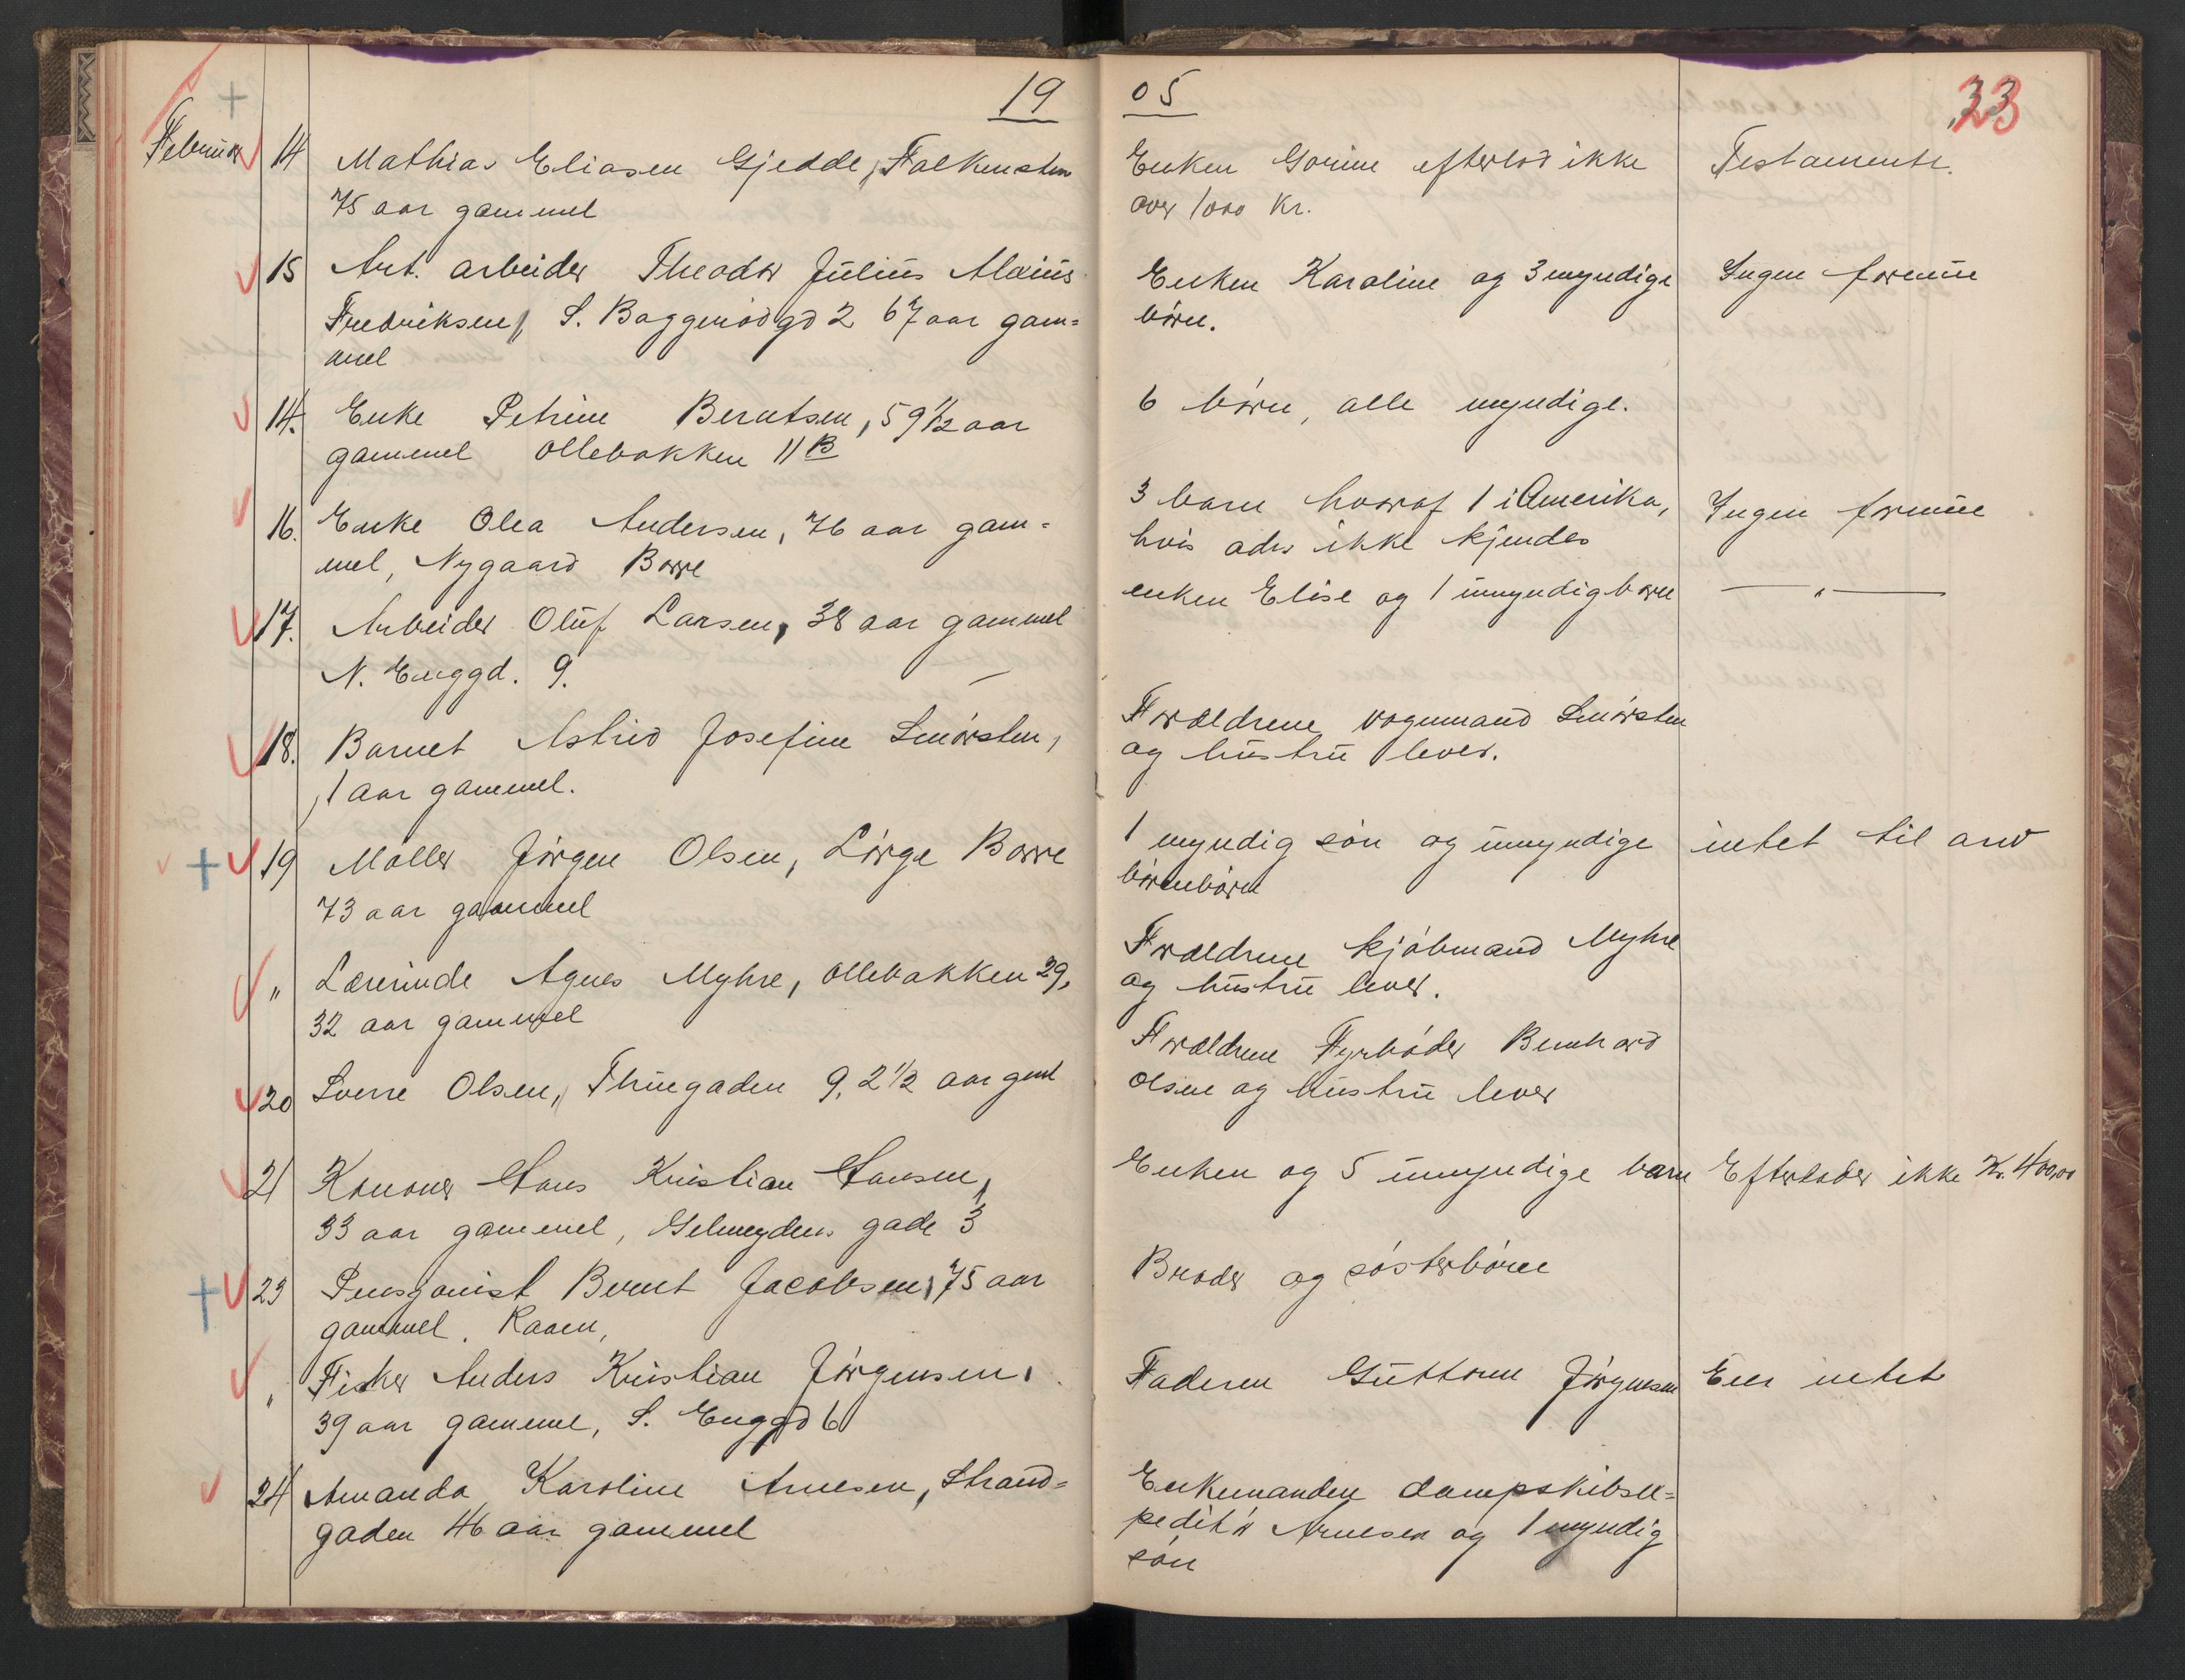 19 05
33
Februar 14 Mathias Eliasen Gjedde, Falkensten
75 aar gammel
Enken Gorine efterlod ikke
over 1000 Kr.
Testamente.
15 Art. arbeider Theodor Julius Alaius
Fredriksen, S. Baggerødgd 2 67 aar gam=
mel
Enken Karoline og 3 myndige
børn.
Ingen formue
14. Enke Petrine Berntsen, 59 1/2 aar
gammel Ollebakken 11 B
6 børn, alle myndige.
16. Enke Olea Andersen, 76 aar gam=
mel, Nygaard Borre
3 barn hvoraf 1 i Amerika,
hvis adr ikke kjendes
Ingen formue
17. Arbeider Oluf Larsen, 38 aar gammel
N. Enggd. 9.
enken Elise og 1 umyndig barn
— " —
18. Barnet Astrid Josefine Smørsten,
1 aar gammel.
Forældrene vognmand Smørsten
og hustru lever.
19 Møller Jørgen Olsen, Lørge Borre
73 aar gammel
1 myndig søn og umyndige
børnebørn
intet til arv
" Lærerinde Agnes Myhre, Ollebakken 29,
32 aar gammel
Forældrene kjøbmand Myhre
og hustru lever.
20 Sverre Olsen, Thuegaden 9, 2 1/2 aar gml
Forældrene Fyrbøder Bernhard
Olsen og hustru lever
21 Kanoner Hans Kristian Hansen,
33 aar gammel, Gelmeydens gade 3
Enken og 5 umyndige barn
Efterlader ikke Kr. 400,00
23 Pensjonist Bernt Jacobsen, 75 aar
gammel. Raaen,
Broder og søsterbørn
" Fisker Anders Kristian Jørgensen,
39 aar gammel, S. Enggd 6
Faderen Guttorm Jørgensen
Eier intet
24 Amanda Karoline Arnesen, Strand=
gaden 46 aar gammel
Enkemanden dampskibsex=
pedit'r Arnesen og 1 myndig
søn